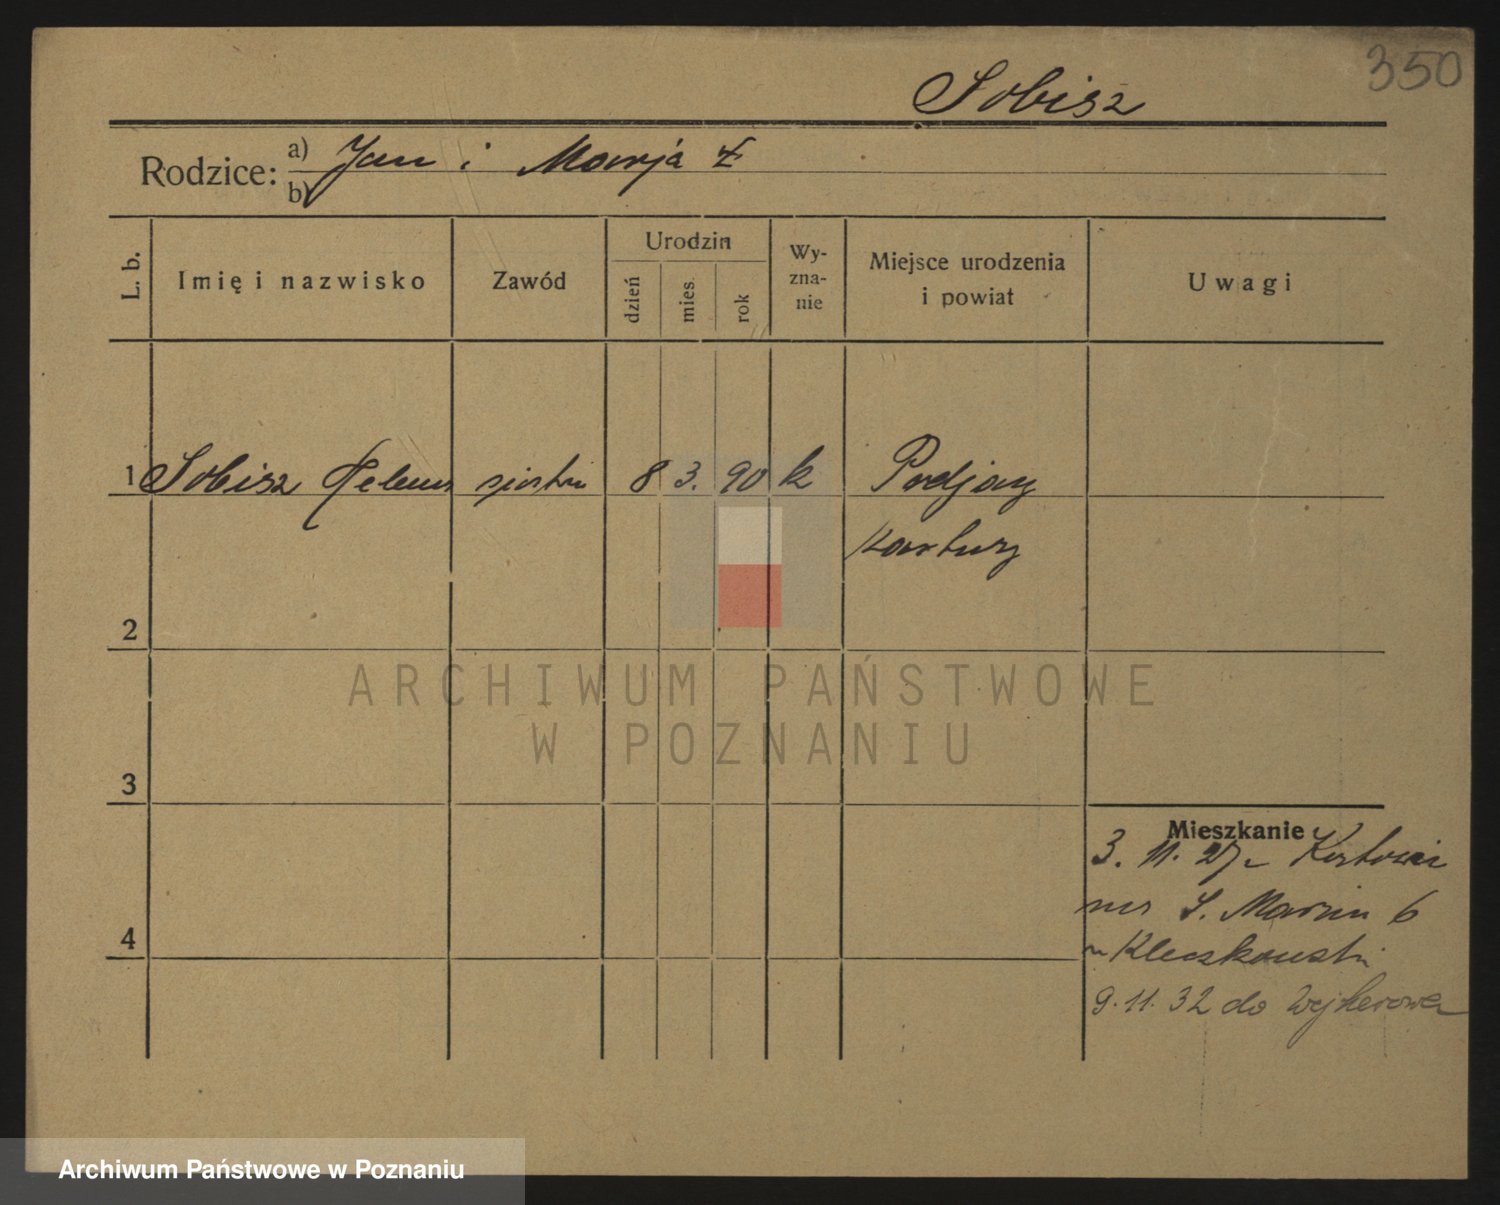 350
Sobisz
Rodzice: a) Jan i Marja Ł
b)
L. b.
Imię i nazwisko
Zawód
Urodzin
dzień
mies.
rok
Wy-
zna-
nie
Miejsce urodzenia
i powiat
Uwagi
1 Sobisz Helena siostra 8 3. 90 k Podjazy
Kartuzy
2
ARCHIWUM PAŃSTWOWE
W POZNANIU
3
Mieszkanie
3. 11. 27
S. Marcin 6
4
9. 11. 32 do Wejherowa
Archiwum Państwowe w Poznaniu